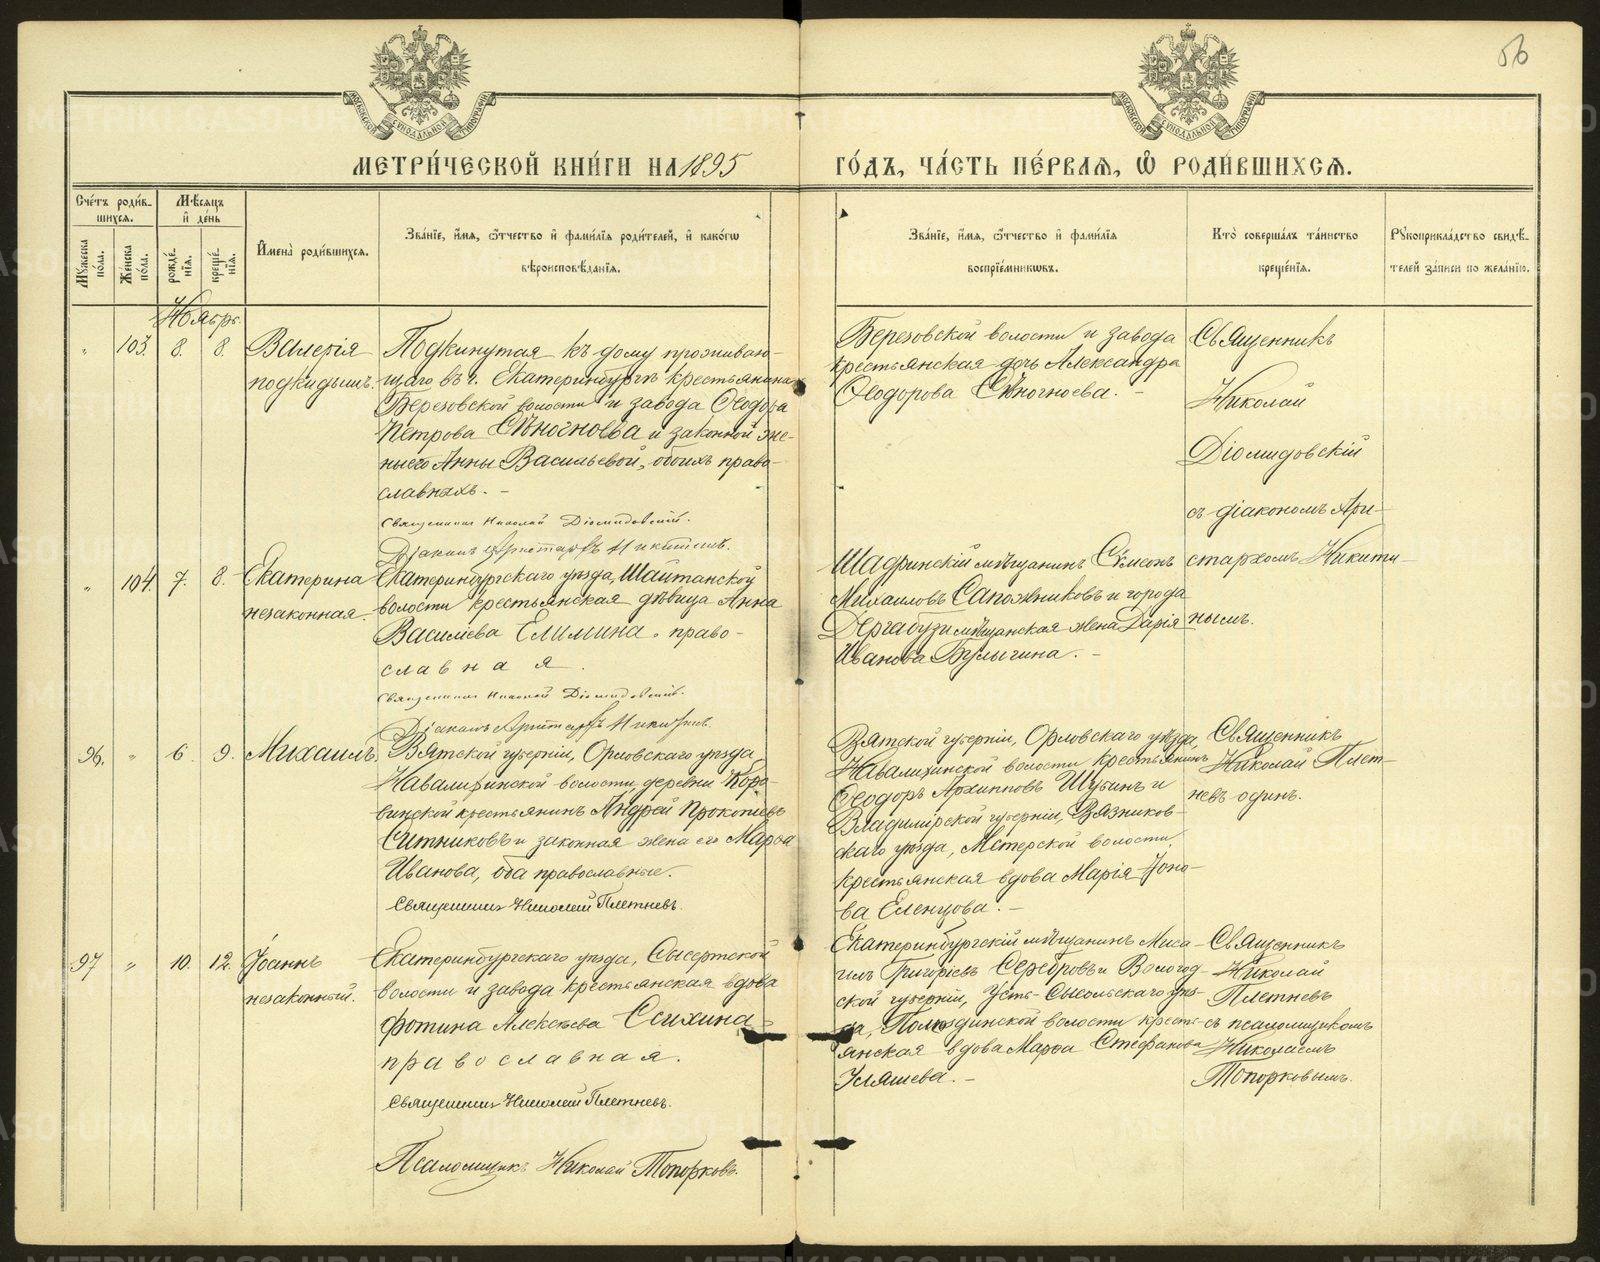 56
МОСКОВСКОЙ СѴНОДАЛЬНОЙ ТИПОГРАФІИ
МОСКОВСКОЙ СѴНОДАЛЬНОЙ ТИПОГРАФІИ
МЕТРИ́ЧЕСКОЙ КНИ́ГИ НА 1895
ГО́ДЪ, ЧА́СТЬ ПЕ́РВАѦ, Ѡ РОДИ́ВШИХСѦ.
Сче́тъ роди́в-
шихся.
Мѣ́сяцъ
и де́нь
Му́жеска
по́ла.
Же́нска
по́ла.
рожде́-
нія.
креще́-
нія.
Имена̀ роди́вшихся.
Зва́ніе, и́мя, о́тчество и фами́лія роди́телей, и како́гѡ
вѣроисповѣ́данія.
Зва́ніе, и́мя, о́тчество и фами́лія
воспріе́мниковъ.
Кто̀ соверша́лъ та́инство
креще́нія.
Рукоприкла́дство свидѣ́-
телей за́писи по жела́нію.
Ноябрь.
" 103. 8. 8. Валерія
подкидышъ.
Подкинутая къ дому проживаю-
щаго въ г. Екатеринбургѣ крестьянина
Березовской волости и завода Ѳеодора
Петрова Сѣногноева и законной же-
ны его Анны Васильевой, обоихъ право-
славныхъ. –
Священникъ Николай Діомидовскій.
Діаконъ Аристархъ Никитинъ.
Березовской волости и завода
крестьянская дочь Александра
Ѳеодорова Сѣногноева. –
Священникъ
Николай
Діомидовскій
съ діакономъ Ари-
стархомъ Никити-
нымъ.
" 104. 7. 8. Екатерина
незаконная.
Екатеринбургскаго уѣзда, Шайтанской
волости крестьянская дѣвица Анна
Васильева Елимина, право-
славная.
Священникъ Николай Діомидовскій.
Діаконъ Аристархъ Никитинъ.
Шадринскій мѣщанинъ Сѵмеонъ
Михаиловъ Сапожниковъ и города
мѣщанская жена Дарія
Иванова Булыгина. –
96. " 6. 9. Михаилъ.
Вятской губерніи, Орловскаго уѣзда,
Навалихинской волости, деревни
крестьянинъ Андрей Прокопіевъ
Ситниковъ и законная жена его Марѳа
Иванова, оба православные.
Священникъ Николай Плетневъ.
Вятской губерніи, Орловскаго уѣзда,
Навалихинской волости крестьянинъ
Ѳеодоръ Архипповъ Шубинъ и
Владимірской губерніи, Вязников-
скаго уѣзда, Мстерской волости,
крестьянская вдова Марія Іоно-
ва Еленцова. –
Священникъ
Николай Плет-
невъ одинъ.
97 " 10. 12. Іоаннъ
незаконный.
Екатеринбургскаго уѣзда, Сысертской
волости и завода крестьянская вдова
Фотина Алексѣева Сеихина,
православная.
Священникъ Николай Плетневъ.
Псаломщикъ Николай Топорковъ.
Екатеринбургскій мѣщанинъ Миса-
илъ Григоріевъ Серебровъ и Вологод-
ской губерніи, Усть-Сысольскаго уѣз-
да, волости кресть-
янская вдова Марѳа Стефанова
Уляшева. –
Священникъ
Николай
Плетневъ
съ псаломщикомъ
Николаемъ
Топорковымъ.
METRIKI.GASO-URAL.RU